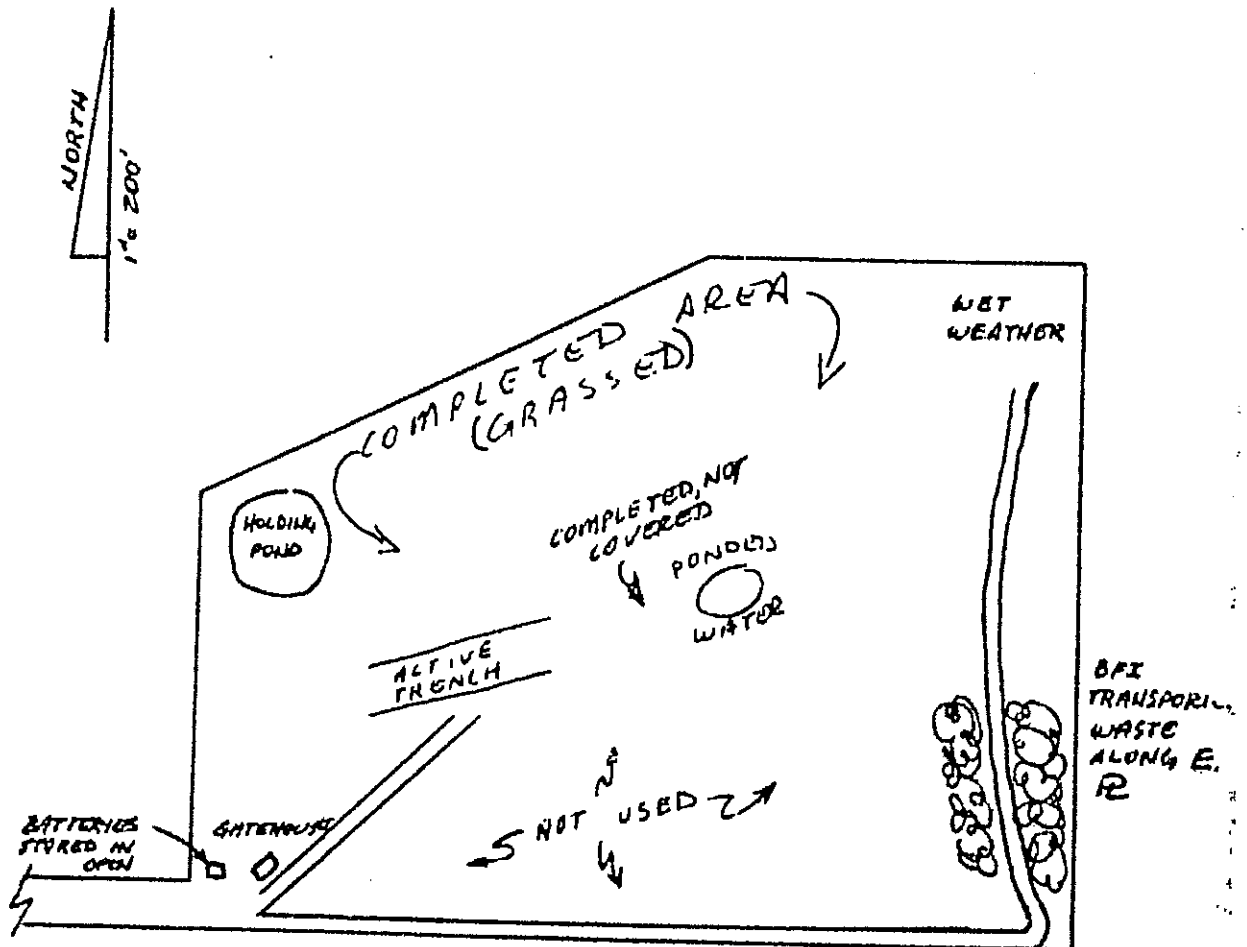 NORTH
1" = 200'
COMPLETED AREA
(GRASSED)
WET
WEATHER
HOLDING
POND
COMPLETED, NOT
COVERED
PONDED
WATER
ACTIVE
TRENCH
BFI
WASTE
ALONG E.
PL
NOT USED
BATTERIES
STORED IN
OPEN
GATEHOUSE